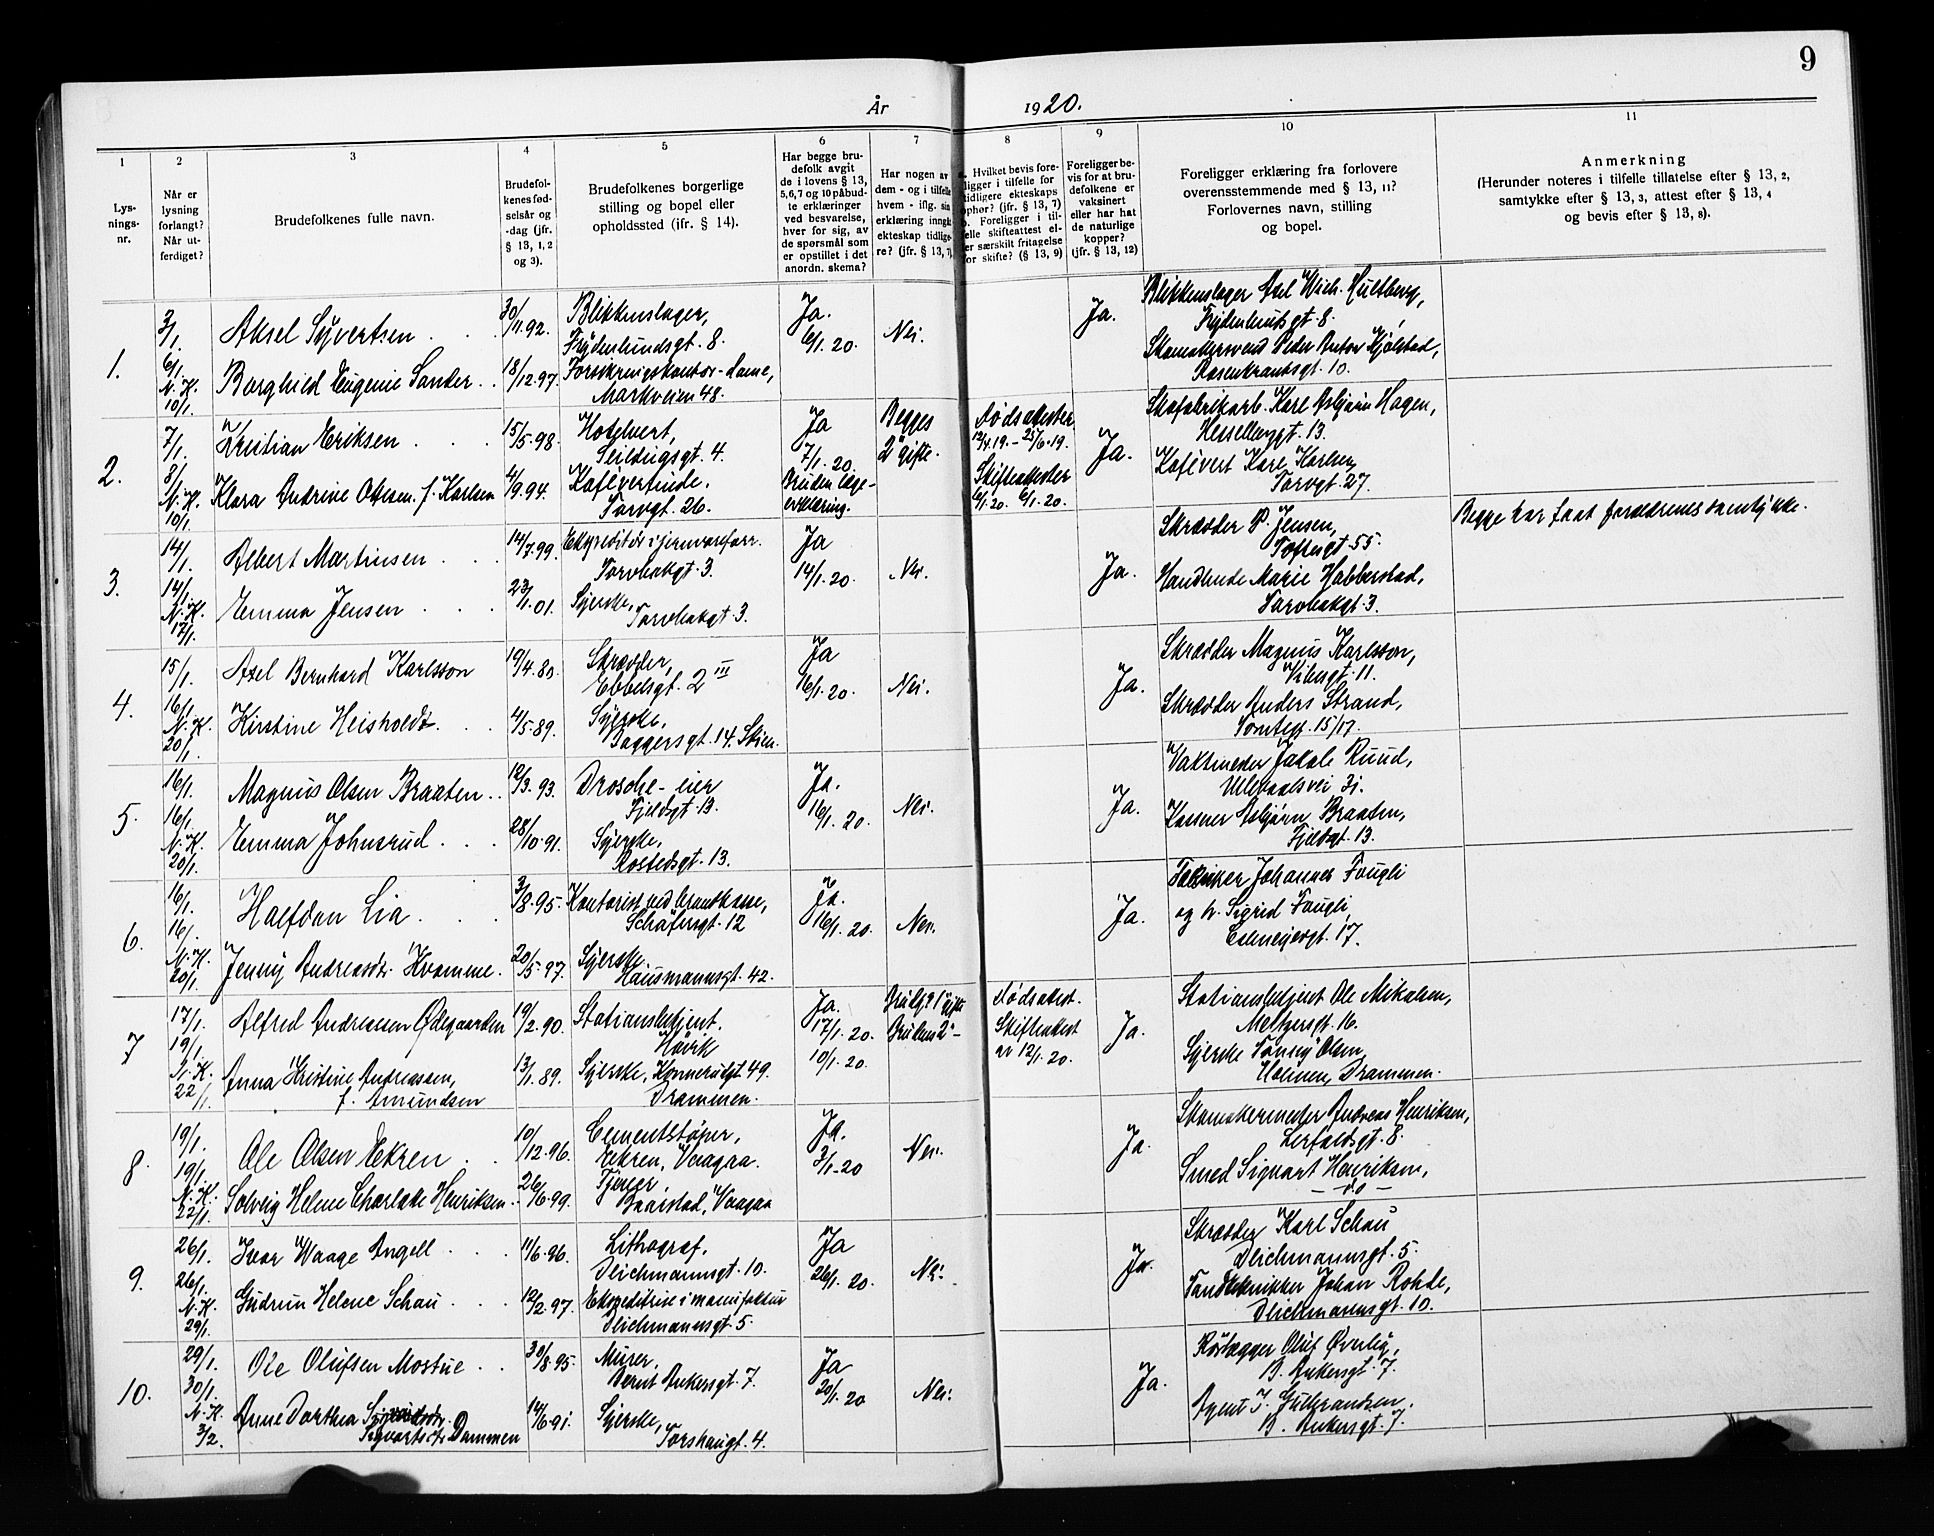 9
År 1920.
1
2
3
4
5
6
7
8
9
10
11
Lys-
nings-
nr.
Når er
lysning
forlangt?
Når ut-
ferdiget?
Brudefolkenes fulle navn.
Brudefol-
kenes fød-
selsår og
-dag (jfr.
§ 13, 1, 2
og 3).
Brudefolkenes borgerlige
stilling og bopel eller
opholdssted (jfr. § 14).
Har begge bru-
defolk avgit
de i lovens § 13,
5,6,7 og 10 påbud-
te erklæringer
ved besvarelse,
hver for sig, av
de spørsmål som
er opstillet i det
anordn. skema?
Har nogen av
dem - og i tilfelle
hvem - iflg. sin
erklæring inngåt
ekteskap tidlige-
re? (jfr. § 13, 7)
Hvilket bevis fore-
ligger i tilfelle for
tidligere ekteskaps
ophør? (§ 13, 7)
Foreligger i til-
felle skifteattest el-
ler særskilt fritagelse
for skifte? (§ 13, 9)
Foreligger be-
vis for at bru-
defolkene er
vaksinert
eller har hat
de naturlige
kopper?
(jfr. § 13, 12)
Foreligger erklæring fra forlovere
overensstemmende med § 13, 11?
Forlovernes navn, stilling
og bopel.
Anmerkning
(Herunder noteres i tilfelle tillatelse efter § 13, 2,
samtykke efter § 13, 3, attest efter § 13, 4
og bevis efter § 13, 8).
1.
3/1.
6/1.
N.K.
10/1.
Aksel Syvertsen
30/11.92.
Blikkenslager,
Frydenlundsgt. 8.
Borghild Eugenie Sander
18/12.97.
Forsikringskontor-dame,
Markveien 48.
Ja.
6/1.20.
Nei.
Ja.
Blikkenslager Axel Wilh. Hultberg,
Frydenlundsgt. 8.
Skomakersvend Peder Anton Kjølstad,
Rosenkrantsgt. 10.
2.
7/1.
8/1.
N.K.
10/1.
Kristian Eriksen
15/5.98.
Hotelvert,
Seildugsgt. 4.
Klara Andrine Olsen f. Karlsen
4/9.94.
Kafévertinde,
Torvgt. 26.
Ja
7/1.20.
Bruden læge-
erklæring.
Begges
2' gifte.
Dødsattester
12/4.19. - 25/6.19.
Skifteattester
6/1.20. 6/1.20.
Ja.
Skofabrikarb. Karl Asbjørn Hagen,
Hesselbergt. 13.
Kafévert Karl Karlsen,
Torvgt. 27.
3.
14/1.
14/1.
N.K.
17/1.
Albert Martinsen
14/7.99.
Ekspeditør i jernvareforr.
Torvbakgt. 3.
Emma Jensen
23/1.01.
Syerske,
Torvbakgt 3.
Ja
14/1.20.
Nei.
Ja.
Skrædder P. Jensen,
Toftesgt 55.
Handlende Marie Habberstad,
Torvbakgt. 3.
Begge har faat forældrenes samtykke.
4.
15/1.
16/1.
N.K.
20/1.
Axel Bernhard Karlsson
19/4.80.
Skrædder,
Ebbelsgt. 2 III
Kirstine Heisholdt
4/5.89.
Syerske,
Baggersgt. 14. Skien.
Ja
16/1.20.
Nei.
Ja.
Skrædder Magnus Karlsson,
Vibesgt. 11.
Skrædder Anders Strand,
Tomtegt. 15/17.
5.
16/1.
16/1.
N.K.
20/1.
Magnus Olsen Braaten
12/3.93.
Drosche-eier
Fjeldsgt 13.
Emma Johnsrud
28/10.91.
Syerske,
Rostedsgt. 13.
Ja.
16/1.20.
Nei.
Ja.
Vaktmester Jakob Ruud,
Ullevaalsvei 31.
Asbjørn Braaten,
Fjeldsgt. 13.
6.
16/1.
16/1.
N.K.
20/1.
Halfdan Lia
3/8.95.
Kontorist ved brandkasse,
Schäfersgt. 12
Jenny Andreasdtr. Kvamme
20/5.97.
Syerske
Hausmannsgt. 42.
Ja.
16/1.20.
Nei.
Ja.
Johannes Fougli
og fr. Sigrid Fougli,
Colmejergt. 17.
7
17/1.
19/1.
N.K.
22/1.
Alfred Andreassen Ødegaarden
19/2.90.
Stationsbetjent.
Høvik
Anna Kristine Andreassen,
f. Amundsen
13/1.89.
Syerske, Konnerudgt 49.
Drammen.
Ja.
17/1.20.
10/1.20.
Brudg. 1' gifte
Bruden 2' -
Dødsattest.
Skifteattest
av 12/1.20.
Ja.
Stationsbetjent Ole Mikalsen,
Meltzersgt. 16.
Syerske Fanny Olsen,
Holmen, Drammen.
8.
19/1.
19/1.
N.K.
22/1.
Ole Olsen Ekren
10/12.96.
Cementstøper,
Ekren, Vaagaa.
Solveig Helene Charlotte Henriksen
26/6.99.
Tjener,
Baarstad, Vaagaa
Ja.
3/1.20
Nei.
Ja.
Skomakermester Andreas Henriksen,
Lerfaldsgt. 8.
Smed Sigvart Henriksen,
- do -
9.
26/1.
26/1.
N.K.
29/1.
Ivar Waage Angell
11/6.96.
Lithograf,
Deichmannsgt. 10.
Gudrun Helene Schau
12/2.97.
Ekspeditrice i manufaktur
Deichmannsgt. 5.
Ja
26/1.20.
Nei.
Ja.
Skrædder Karl Schau
Deichmannsgt. 5.
Tandtekniker Johan Rohde,
Deichmannsgt. 10.
10.
29/1.
30/1.
N.K.
3/2.
Ole Olufsen Mostue
30/8.95.
Murer,
Bernt Ankersgt. 7
Anne Dorthea
Sigvartsdtr. Dammen
14/6.91.
Syerske,
Torshaugt. 4.
Ja
20/1.20
Nei.
Ja.
Rørlægger Oluf Øverlig,
B. Ankersgt. 7.
Agent J. Gulbrandsen.
B. Ankersgt. 7.